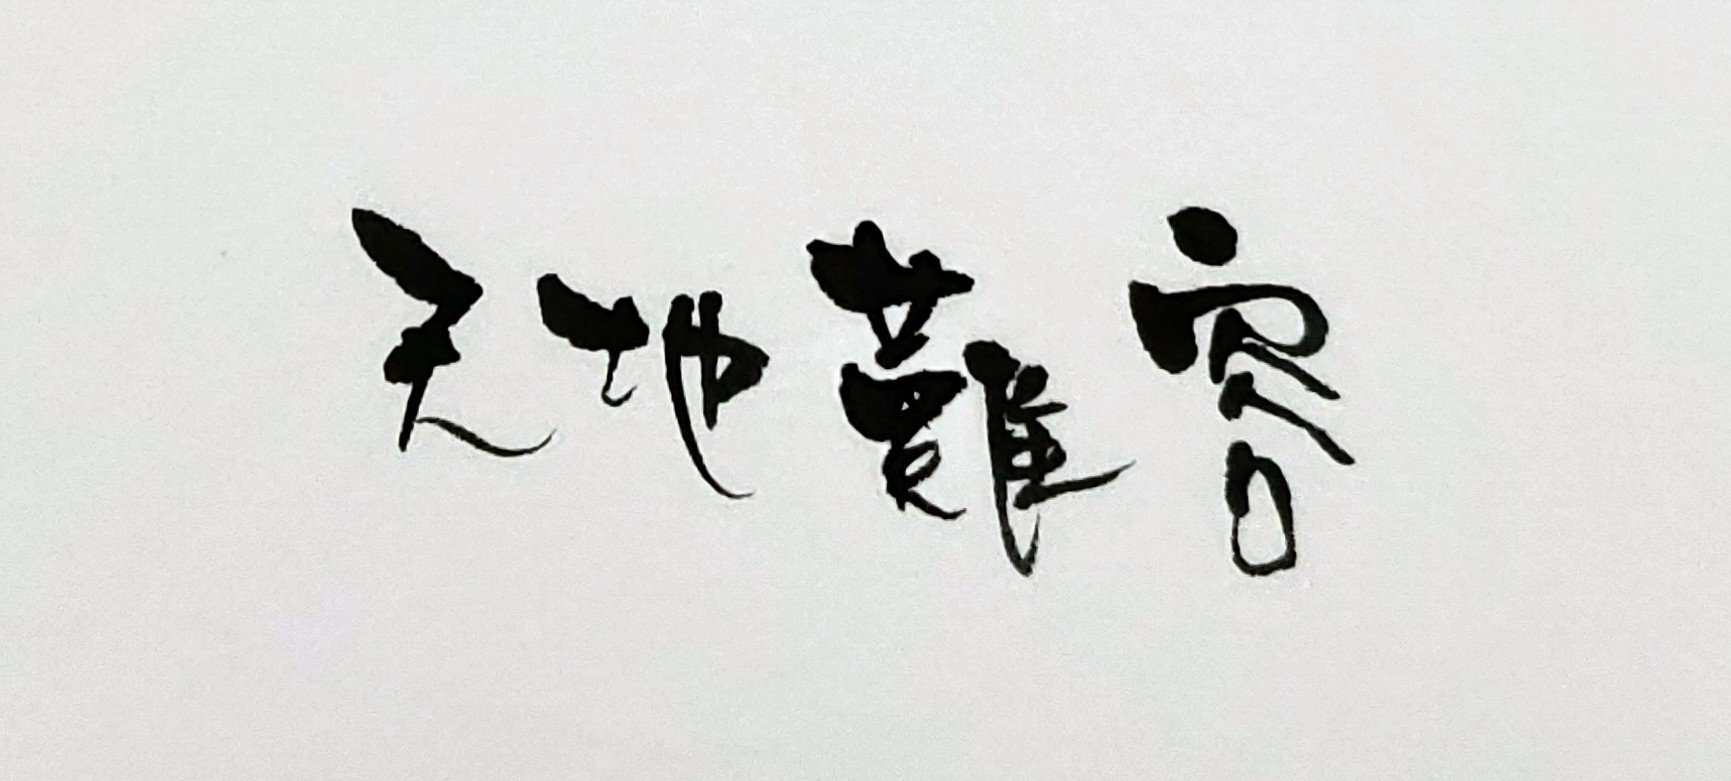 天地難容